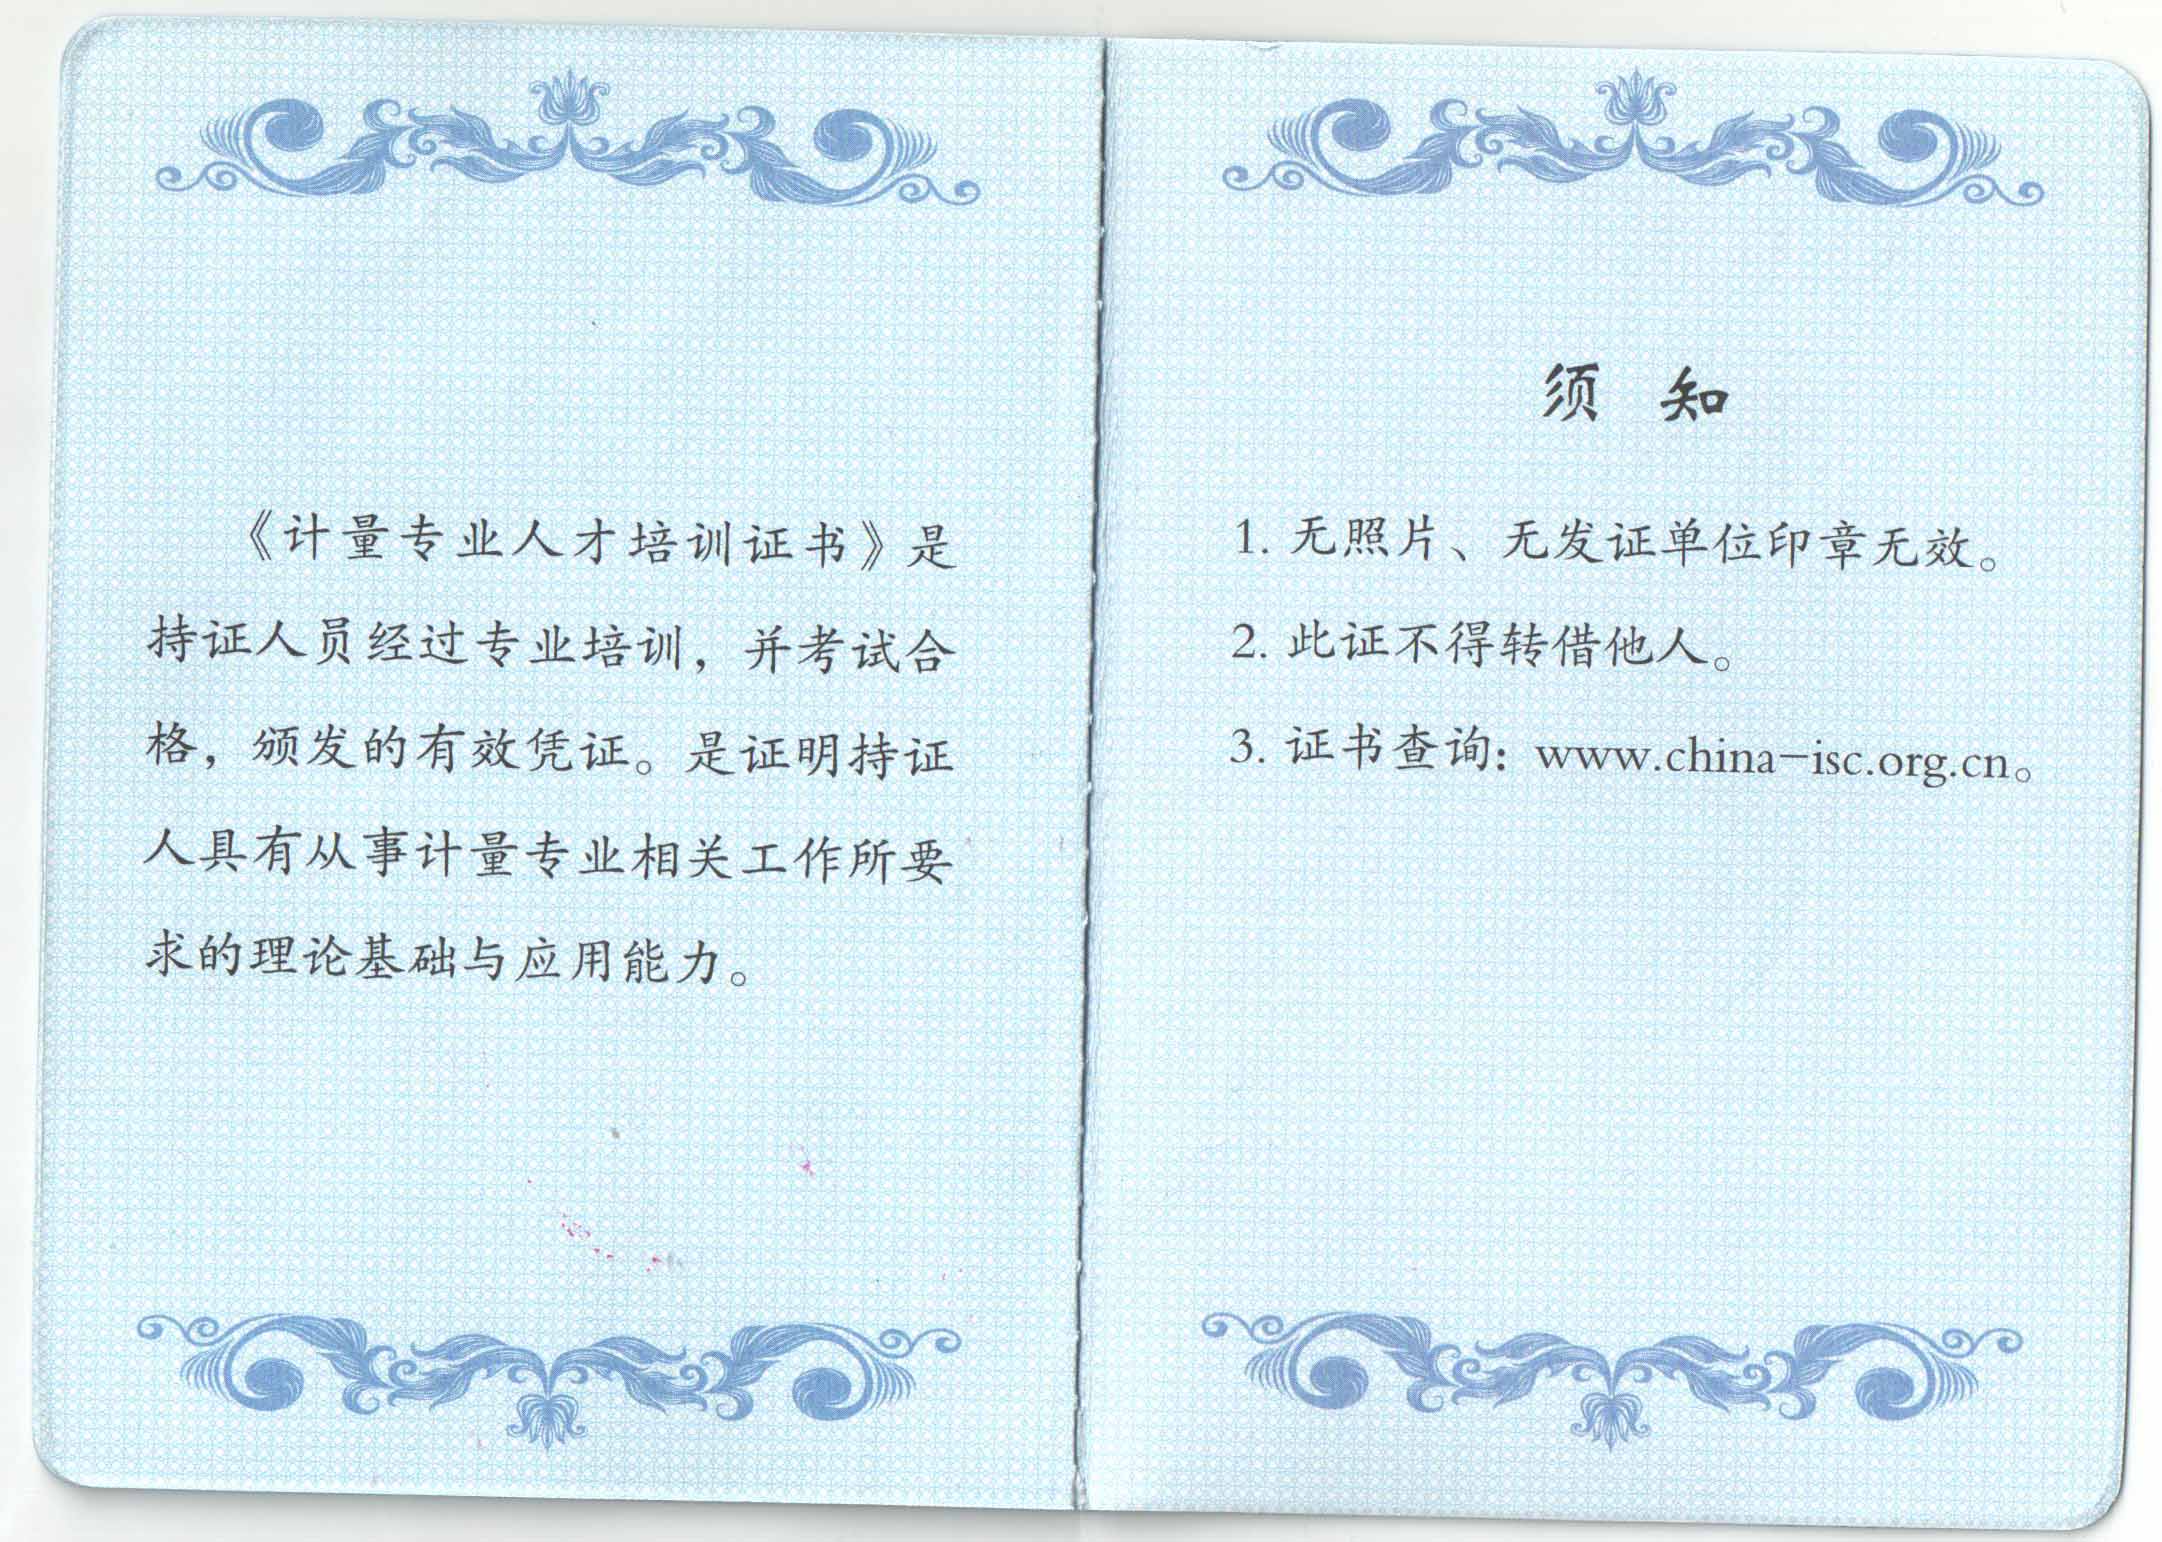 《计量专业人才培训证书》是
持证人员经过专业培训，并考试合
格，颁发的有效凭证。是证明持证
人具有从事计量专业相关工作所要
求的理论基础与应用能力。
须 知
1. 无照片、无发证单位印章无效。
2. 此证不得转借他人。
3. 证书查询：www.china-isc.org.cn。